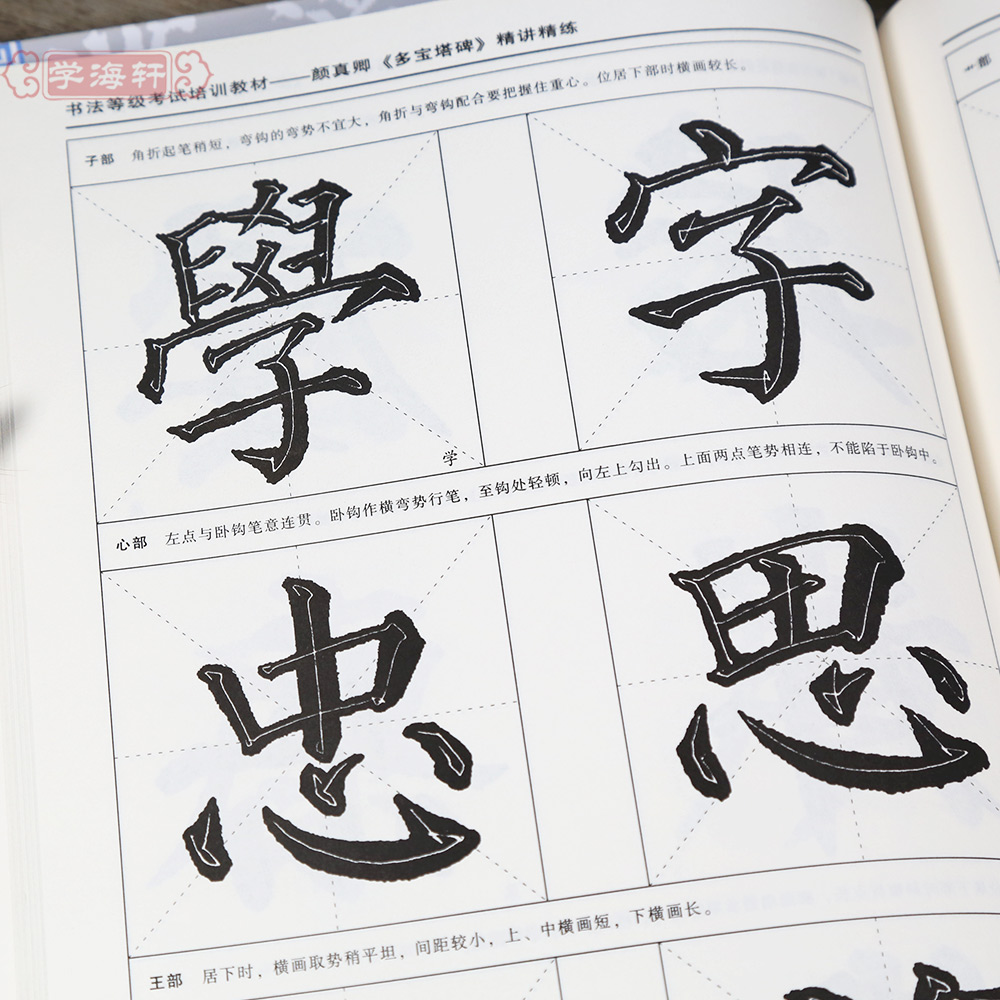 学海轩
书法等级考试培训教材——颜真卿《多宝塔碑》精讲精练
子部 角折起笔稍短，弯钩的弯势不宜大，角折与弯钩配合要把握住重心。位居下部时横画较长。
學 字
学
心部 左点与卧钩笔意连贯。卧钩作横弯势行笔，至钩处轻顿，向左上勾出。上面两点笔势相连，不能陷于卧钩中。
忠 思
王部 居下时，横画取势稍平坦，间距较小，上、中横画短，下横画长。